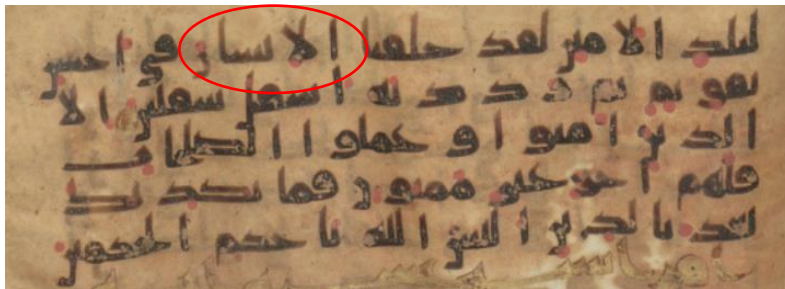 لبلد الامين لقد خلقنا الانسان في احسن
تقويم ثم رددنه اسفل سفلين الا
الذين امنوا و عملوا الصلحات
فلهم اجر غير ممنون فما يكذبك
بعد بالدين اليس الله باحكم الحكمين